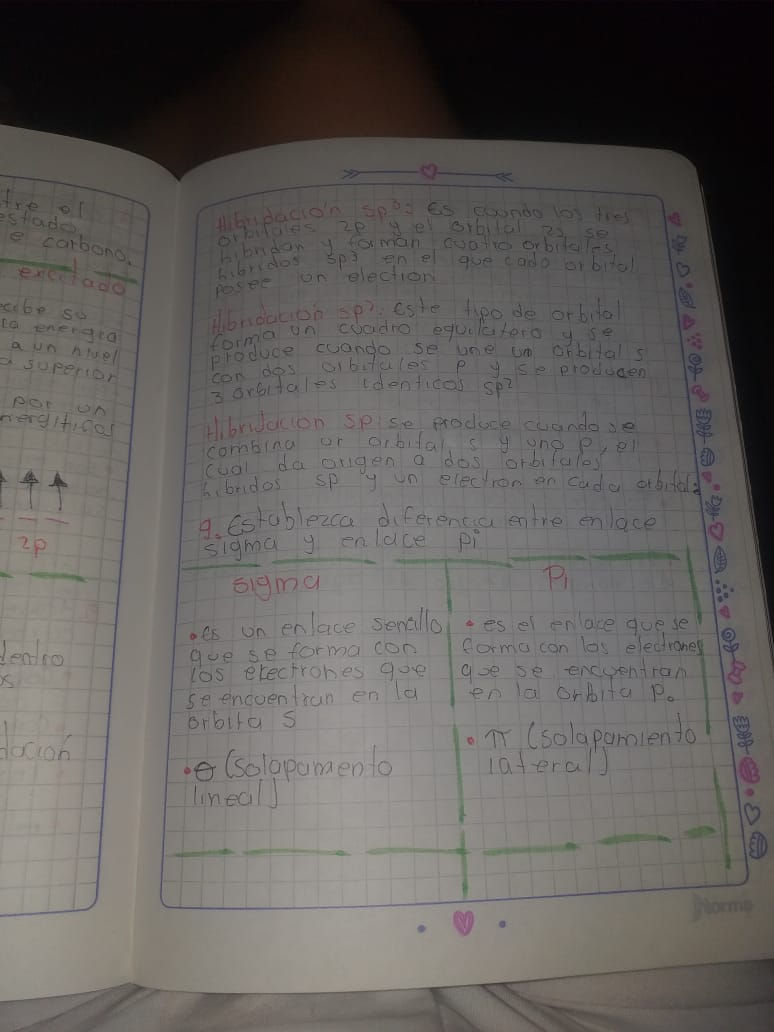 tre el
estado
e carbono.
excitado
cibe su
ta energia
a un nivel
superior
por un
nergiticas
2p
dentro
os
dación
Hibridación sp³: Es cuando los tres
orbitales 2p y el orbital 2s se
hibridan y forman cuatro orbitales
hibridos sp3 en el que cada orbital
posee un election
Hibridación sp²: Este tipo de orbital
forma un cuadro equilatero y se
produce cuando se une un orbital s
con dos orbitales p y se producen
3 orbitales identicos sp²
Hibridacion sp: se produce cuando se
combina un orbital s y uno p, el
cual da origen a dos orbitales
hibridos sp y un electron en cada orbital:
9. Establezca diferencia entre enlace
sigma y enlace pi
sigma
•es un enlace sencillo
que se forma con
los electrones que
se encuentran en la
orbita s
•Ɵ (solapamento
lineal)
Pi
• es el enlace que se
forma con los electrones
que se encuentran
en la orbita p.
• π (solapamiento
lateral)
Norma